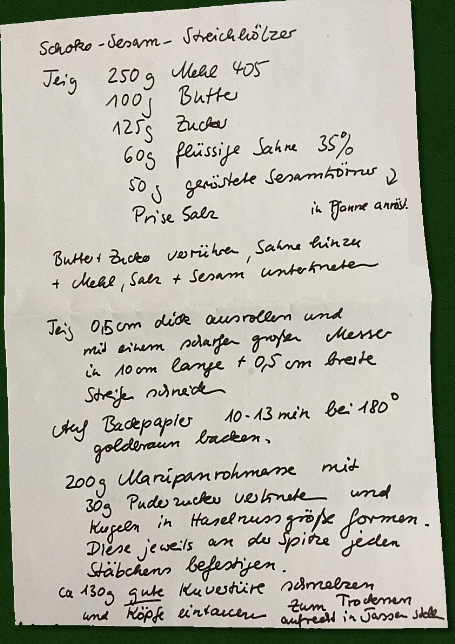 Schoko-Sesam-Streichhölzer
Teig 250g Mehl 405
100g Butter
125g Zucker
60g flüssige Sahne 35%
50g geröstete Sesamkörner
Prise Salz in Pfanne anröst.
Butter + Zucker verrühren, Sahne hinzu
+ Mehl, Salz + Sesam unterkneten
Teig 0,5cm dick ausrollen und
mit einem scharfen großen Messer
in 10cm lange + 0,5cm breite
Streifen schneiden
Auf Backpapier 10-13 min bei 180°
goldbraun backen.
200g Marzipanrohmasse mit
30g Puderzucker verkneten und
Kugeln in Haselnussgröße formen.
Diese jeweils an der Spitze jeden
Stäbchens befestigen.
ca 130g gute Kuvertüre schmelzen
und Köpfe eintauchen zum Trocknen
aufrecht in Tassen stell